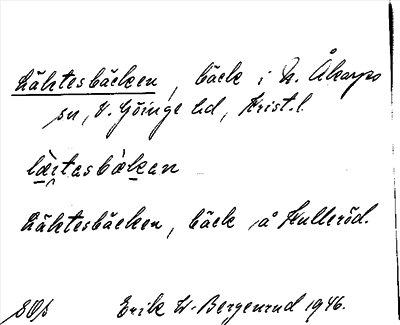 Läktesbäcken, bäck i N. Åkarps
sn, V. Göinge hd, Krist. l.
Läktesbäcken, bäck å Hulleröd.
Erik W. Bergenrud 1946.